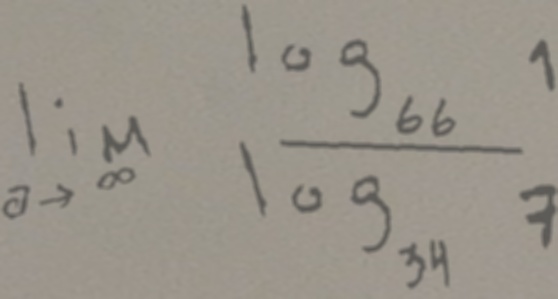 lim a→∞ log_66 1 / log_34 7